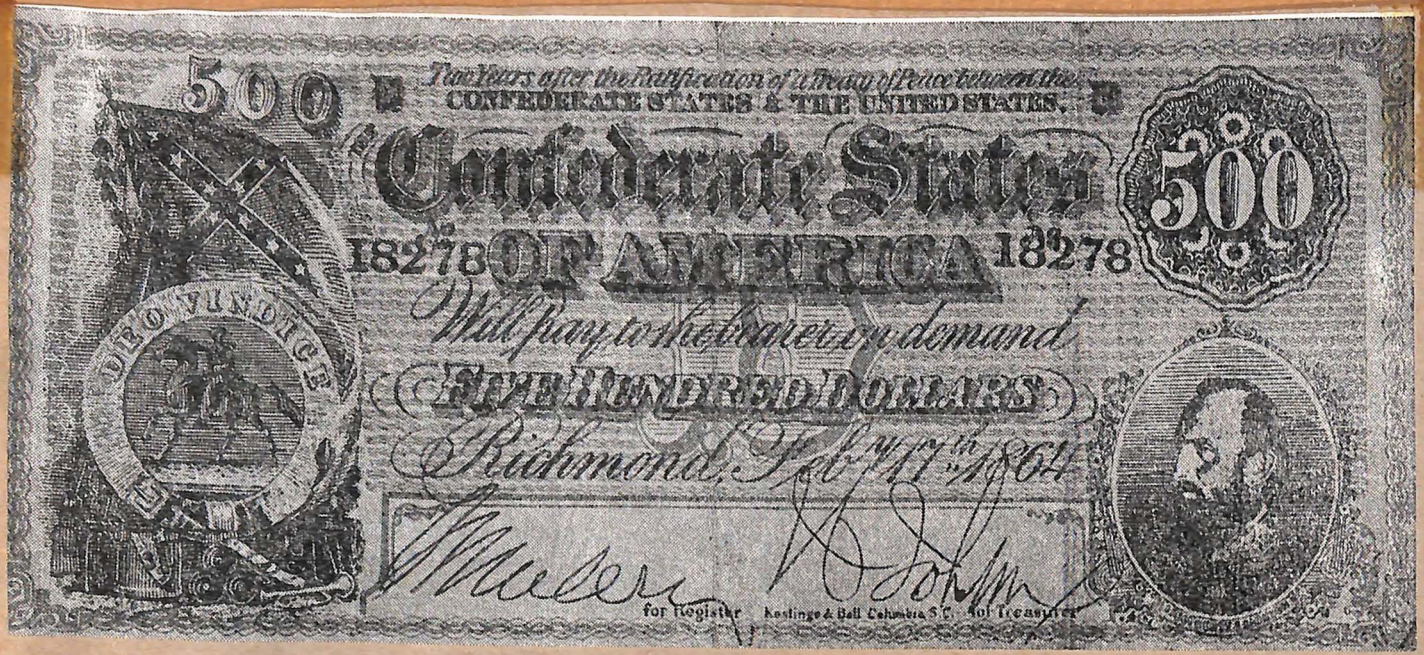 500
Two Years after the Ratification of a Treaty of Peace between the
CONFEDERATE STATES & THE UNITED STATES.
500
Confederate States
No 18278 OF AMERICA No 18278
Will pay to the bearer on demand
DEO VINDICE
FIVE HUNDRED DOLLARS
Richmond, Feby 17th 1864
for Register Keatinge & Ball Columbia S.C. for Treasurer